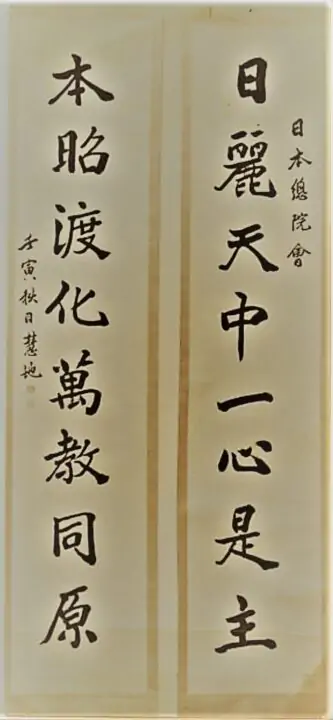 日本總院會
日麗天中一心是主
本昭渡化萬教同原
壬寅秋日慧地